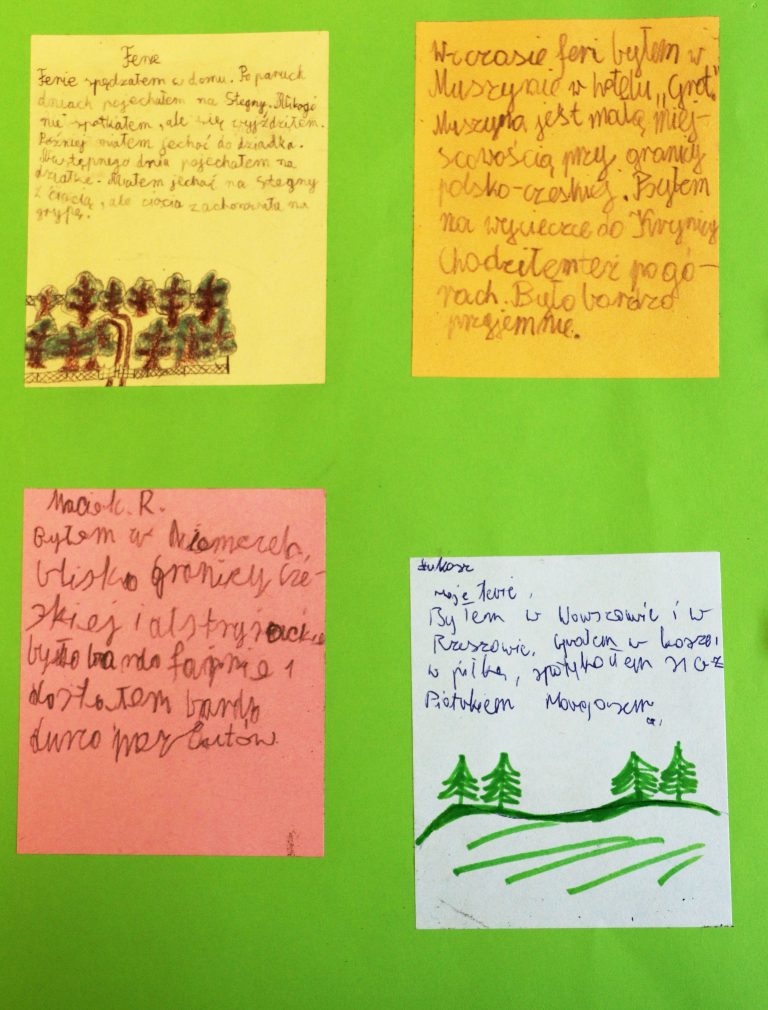 Ferie
Ferie spędzałem w domu. Po paruch
dniach pojechałem na Stegny. Nikogo
nie spotkałem, ale się wyjździłem.
Później miałem jechać do dziadka.
Następnego dnia pojechałem na
działkę. Miałem jechać na Stegny
z ciocią, ale ciocia zachorowała na
grypę.
W czasie feri byłem w
Muszynie w hotelu „Grot."
Muszyna jest małą miej-
scowością przy granicy
polsko-czeskiej. Byłem
na wycieczce do Krynicy
Chodziłem też po gó-
rach. Było bardzo
przyjemnie.
Maciek. R.
Byłem w Niemczech,
blisko granicy cze-
skiej i austryjackiej
było bardo fajnie i
dostałem bardo
durzo Eurów
Łukasz
moje ferie.
Byłem w Warszawie i w
Rzeszowie, grałem w kosza,
w piłkę, spotykałem się z
Piotrkiem